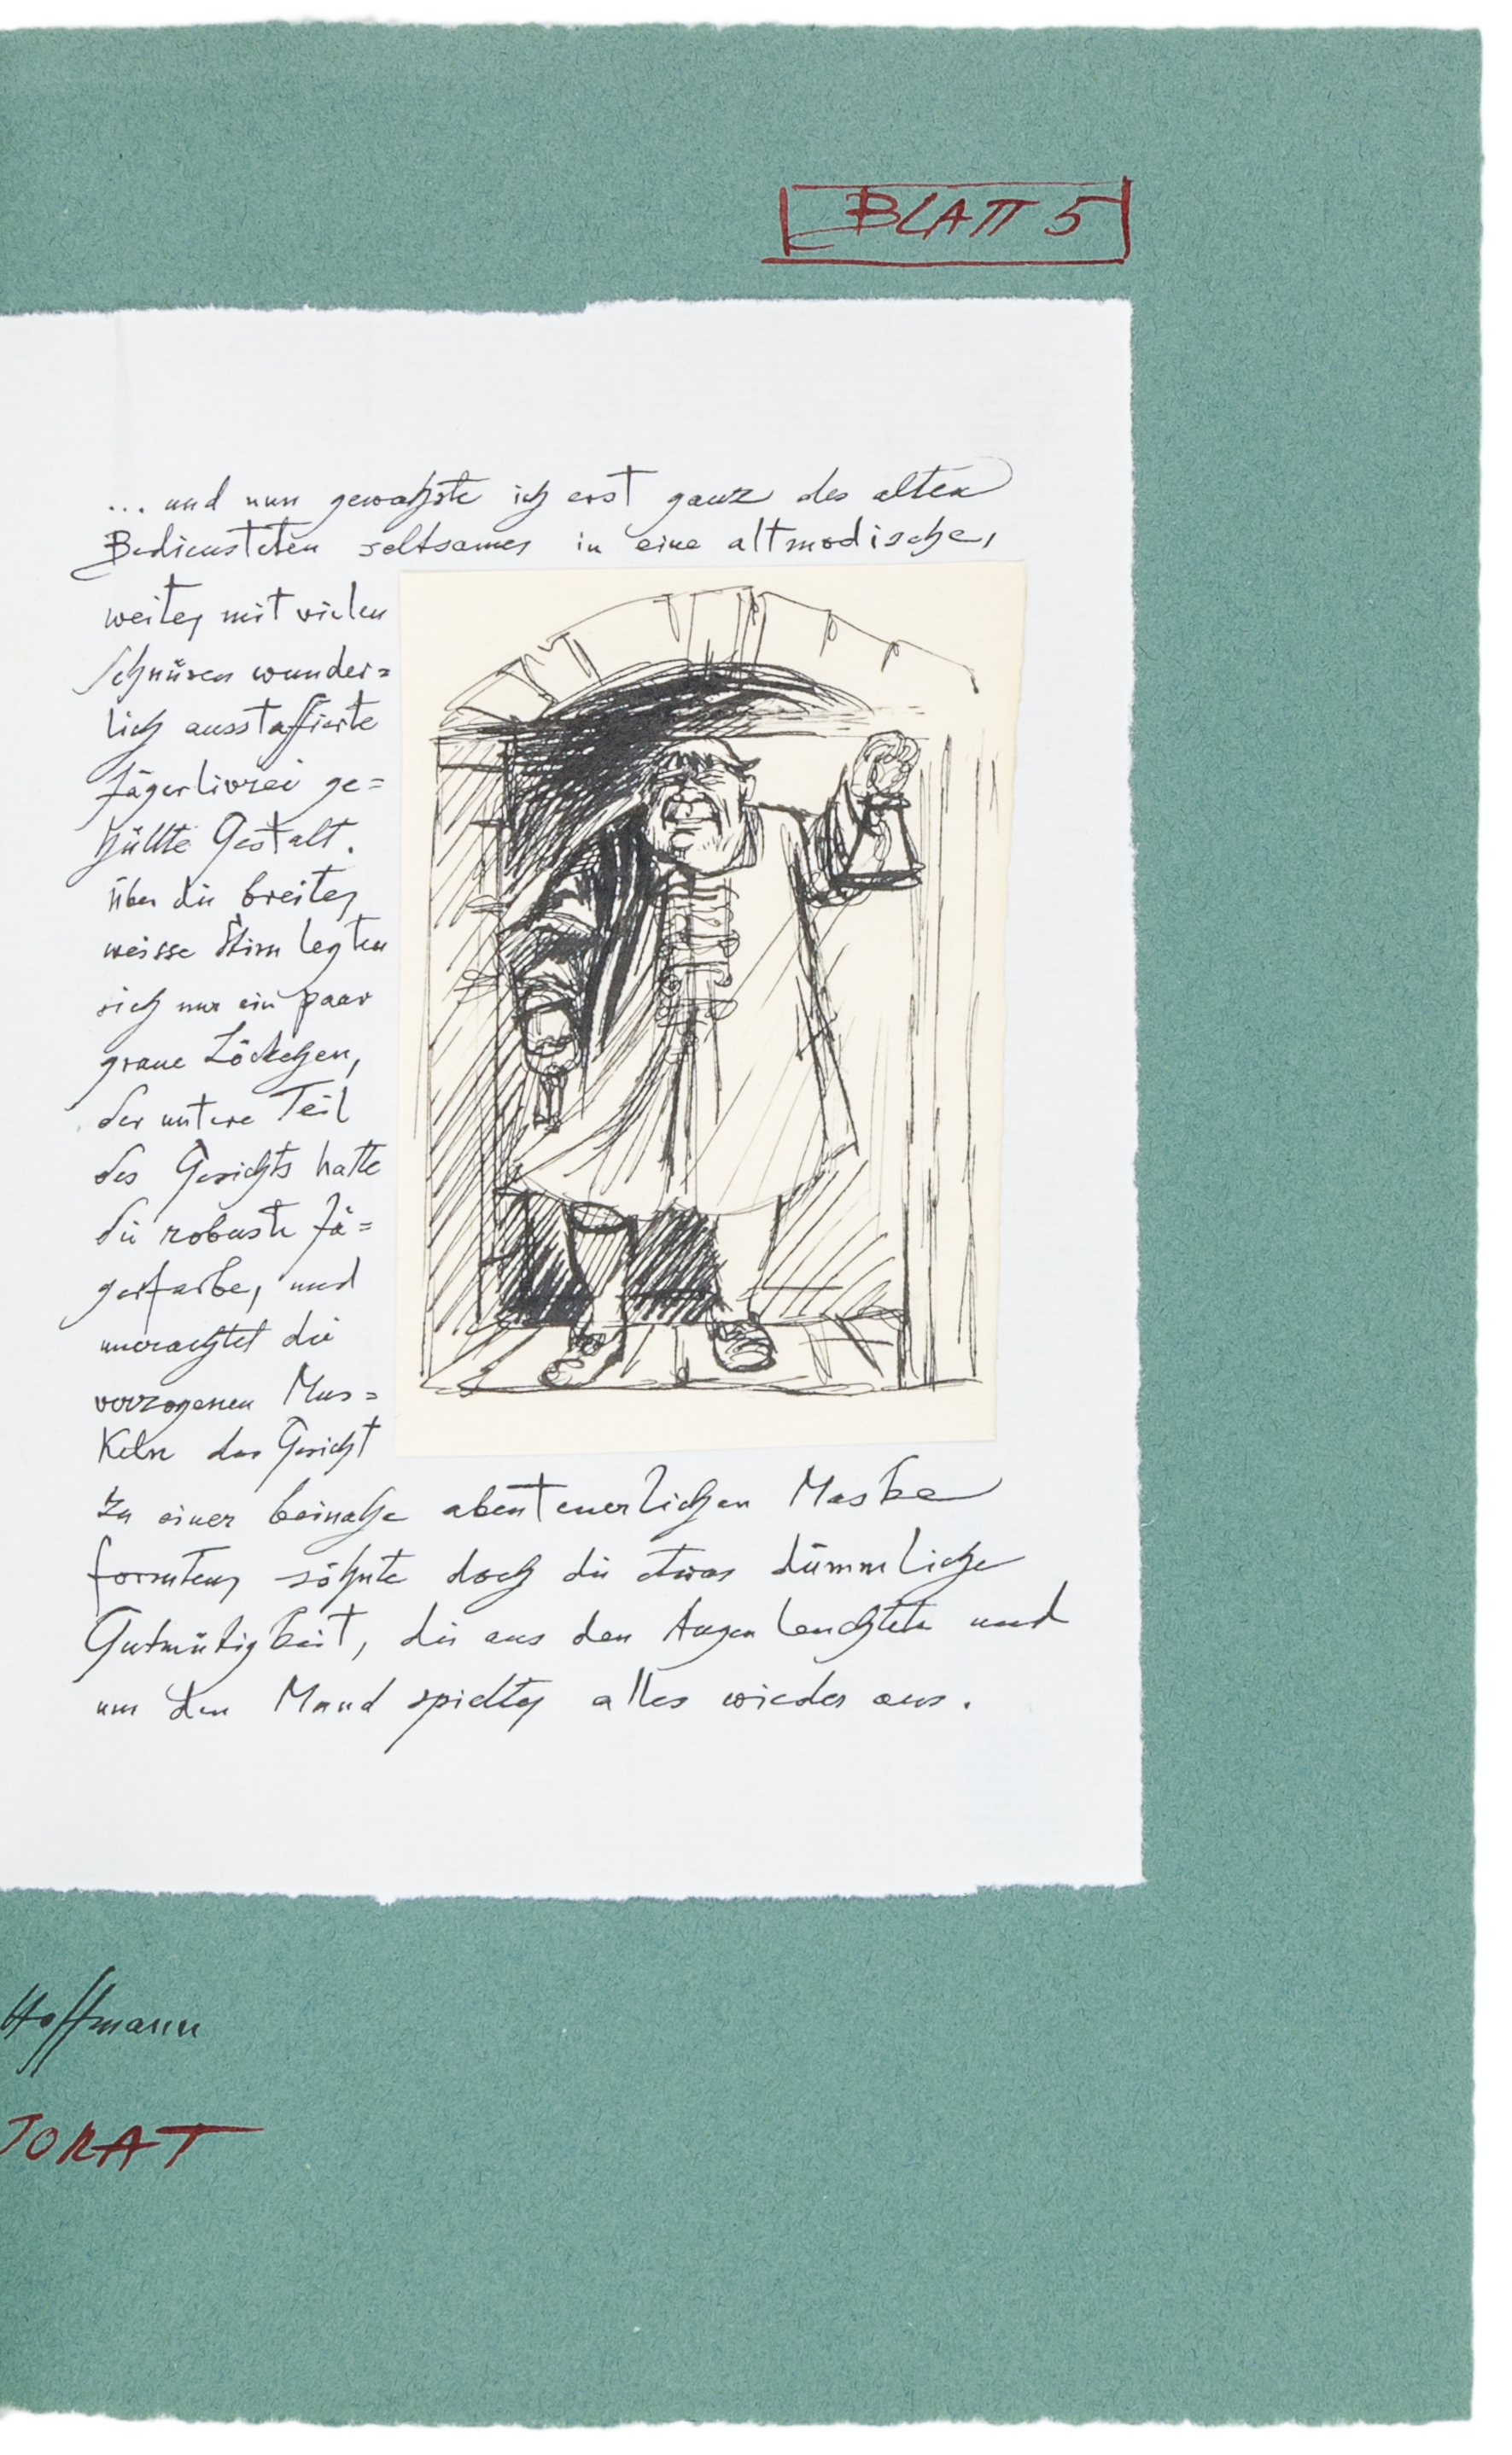 BLATT 5
... und nun gewahrte ich erst ganz des alten
Bediensteten seltsames in eine altmodische,
weite, mit vielen
Schnüren wunder=
lich ausstaffierte
Jägerlivrei ge=
hüllte Gestalt.
Über die breite,
weisse Stirn legten
sich nur ein paar
graue Löckchen,
der untere Teil
des Gesichts hatte
die robuste Jä=
gerfarbe, und
unerachtet die
verzogenen Mus=
keln das Gesicht
zu einer beinahe abenteuerlichen Maske
formten, söhnte doch die etwas dümmliche
Gutmütigkeit, die aus den Augen leuchtete und
um den Mund spielte, alles wieder aus.
Hoffmann
JORAT